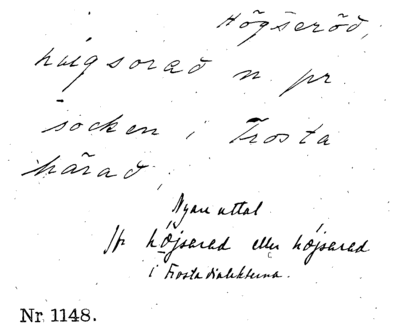 Högseröd,
höigsorað n. pr.
socken i Frosta
härad;
Nyare uttal
höjsarad eller höjsarad
i Frostadialekterna.
Nr. 1148.